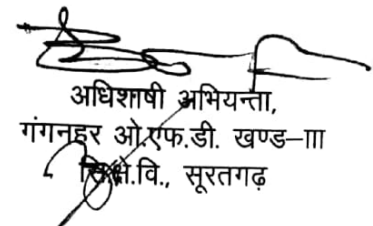 अधिशाषी अभियन्ता,
गंगनहर ओ.एफ.डी. खण्ड-III
सि.क्षे.वि., सूरतगढ़